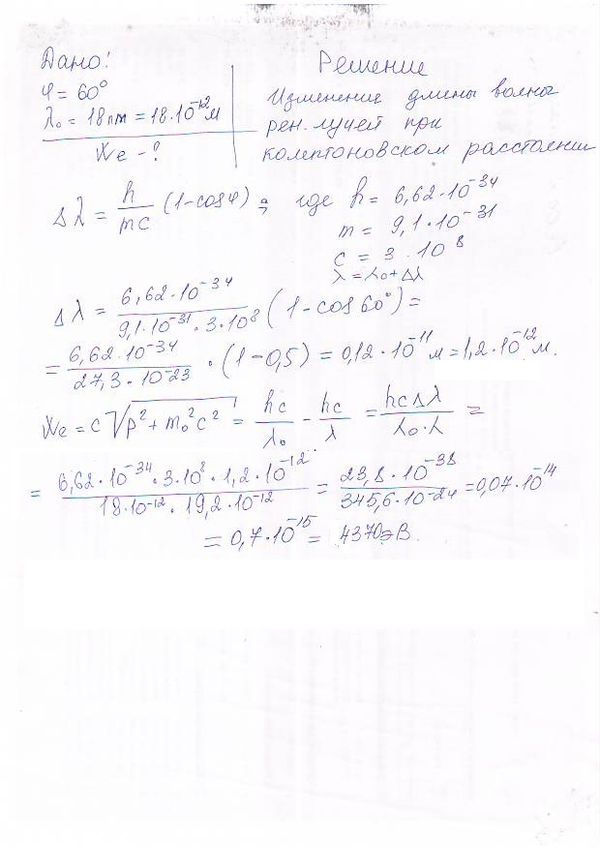 Дано:
φ = 60°
λ₀ = 18 пт = 18·10⁻¹² м
We - ?
Решение
Изменение длины волны
рен. лучей при
комптоновском расстоянии
Δλ = h/mc (1-cosφ); где h = 6,62·10⁻³⁴
m = 9,1·10⁻³¹
c = 3·10⁸
λ = λ₀+Δλ
Δλ = 6,62·10⁻³⁴/9,1·10⁻³¹·3·10⁸ (1-cos 60°) =
= 6,62·10⁻³⁴/27,3·10⁻²³ · (1-0,5) = 0,12·10⁻¹¹ м = 1,2·10⁻¹² м.
We = c√p²+m₀²c² = hc/λ₀ - hc/λ = hcΔλ/λ₀·λ =
= 6,62·10⁻³⁴·3·10⁸·1,2·10⁻¹²/18·10⁻¹²·19,2·10⁻¹² = 23,8·10⁻³⁸/345,6·10⁻²⁴ = 0,07·10⁻¹⁴
= 0,7·10⁻¹⁵ = 4370эВ.